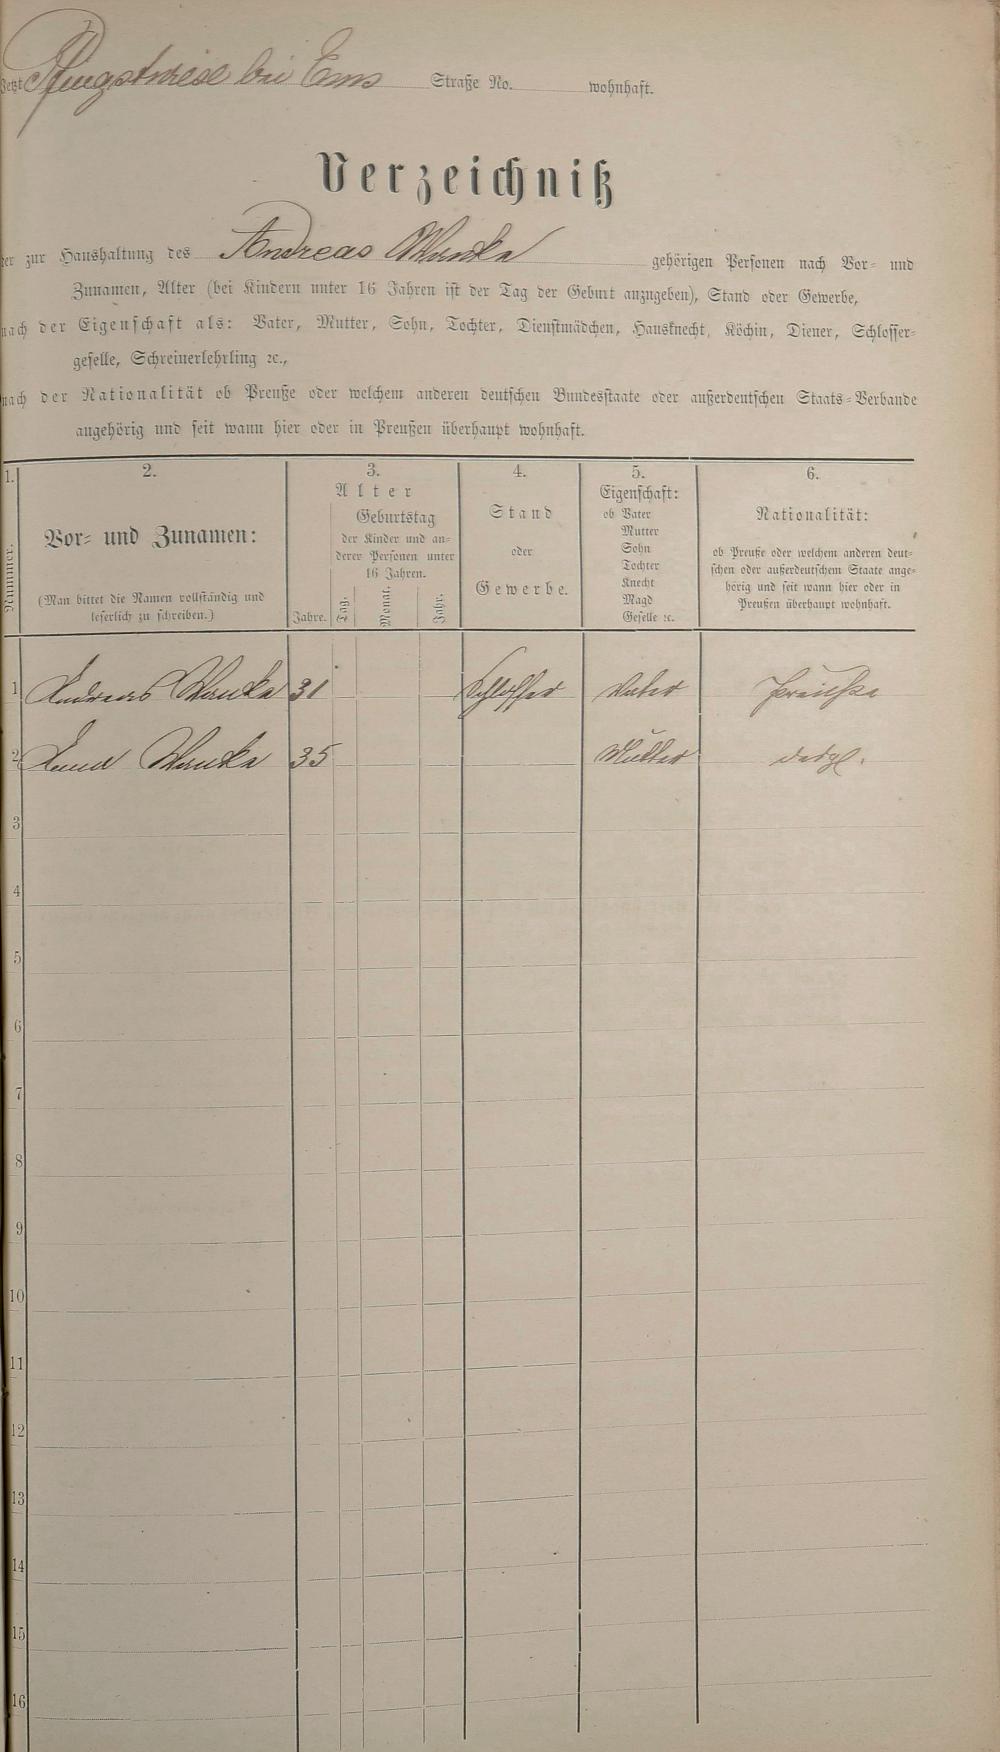 Jetzt Pfingstwiese bei Ems Straße No. wohnhaft.
Verzeichniß
der zur Haushaltung des Andreas Wanka gehörigen Personen nach Vor- und
Zunamen, Alter (bei Kindern unter 16 Jahren ist der Tag der Geburt anzugeben), Stand oder Gewerbe,
nach der Eigenschaft als: Vater, Mutter, Sohn, Tochter, Dienstmädchen, Hausknecht, Köchin, Diener, Schlosser-
geselle, Schreinerlehrling ꝛc.,
nach der Nationalität ob Preuße oder welchem anderen deutschen Bundesstaate oder außerdeutschen Staats-Verbande
angehörig und seit wann hier oder in Preußen überhaupt wohnhaft.
1. 2. 3. 4. 5. 6.
Nummer.
Vor- und Zunamen:
(Man bittet die Namen vollständig und
leserlich zu schreiben.)
Alter
Geburtstag
der Kinder und an-
derer Personen unter
16 Jahren.
Jahre. Tag. Monat. Jahr.
Stand
oder
Gewerbe.
Eigenschaft:
ob Vater
Mutter
Sohn
Tochter
Knecht
Magd
Geselle ꝛc.
Nationalität:
ob Preuße oder welchem anderen deut-
schen oder außerdeutschem Staate ange-
hörig und seit wann hier oder in
Preußen überhaupt wohnhaft.
1 Andreas Wanka 31 Schlosser Vater Preuße
2 Anna Wanka 35 Mutter desgl.
3
4
5
6
7
8
9
10
11
12
13
14
15
16